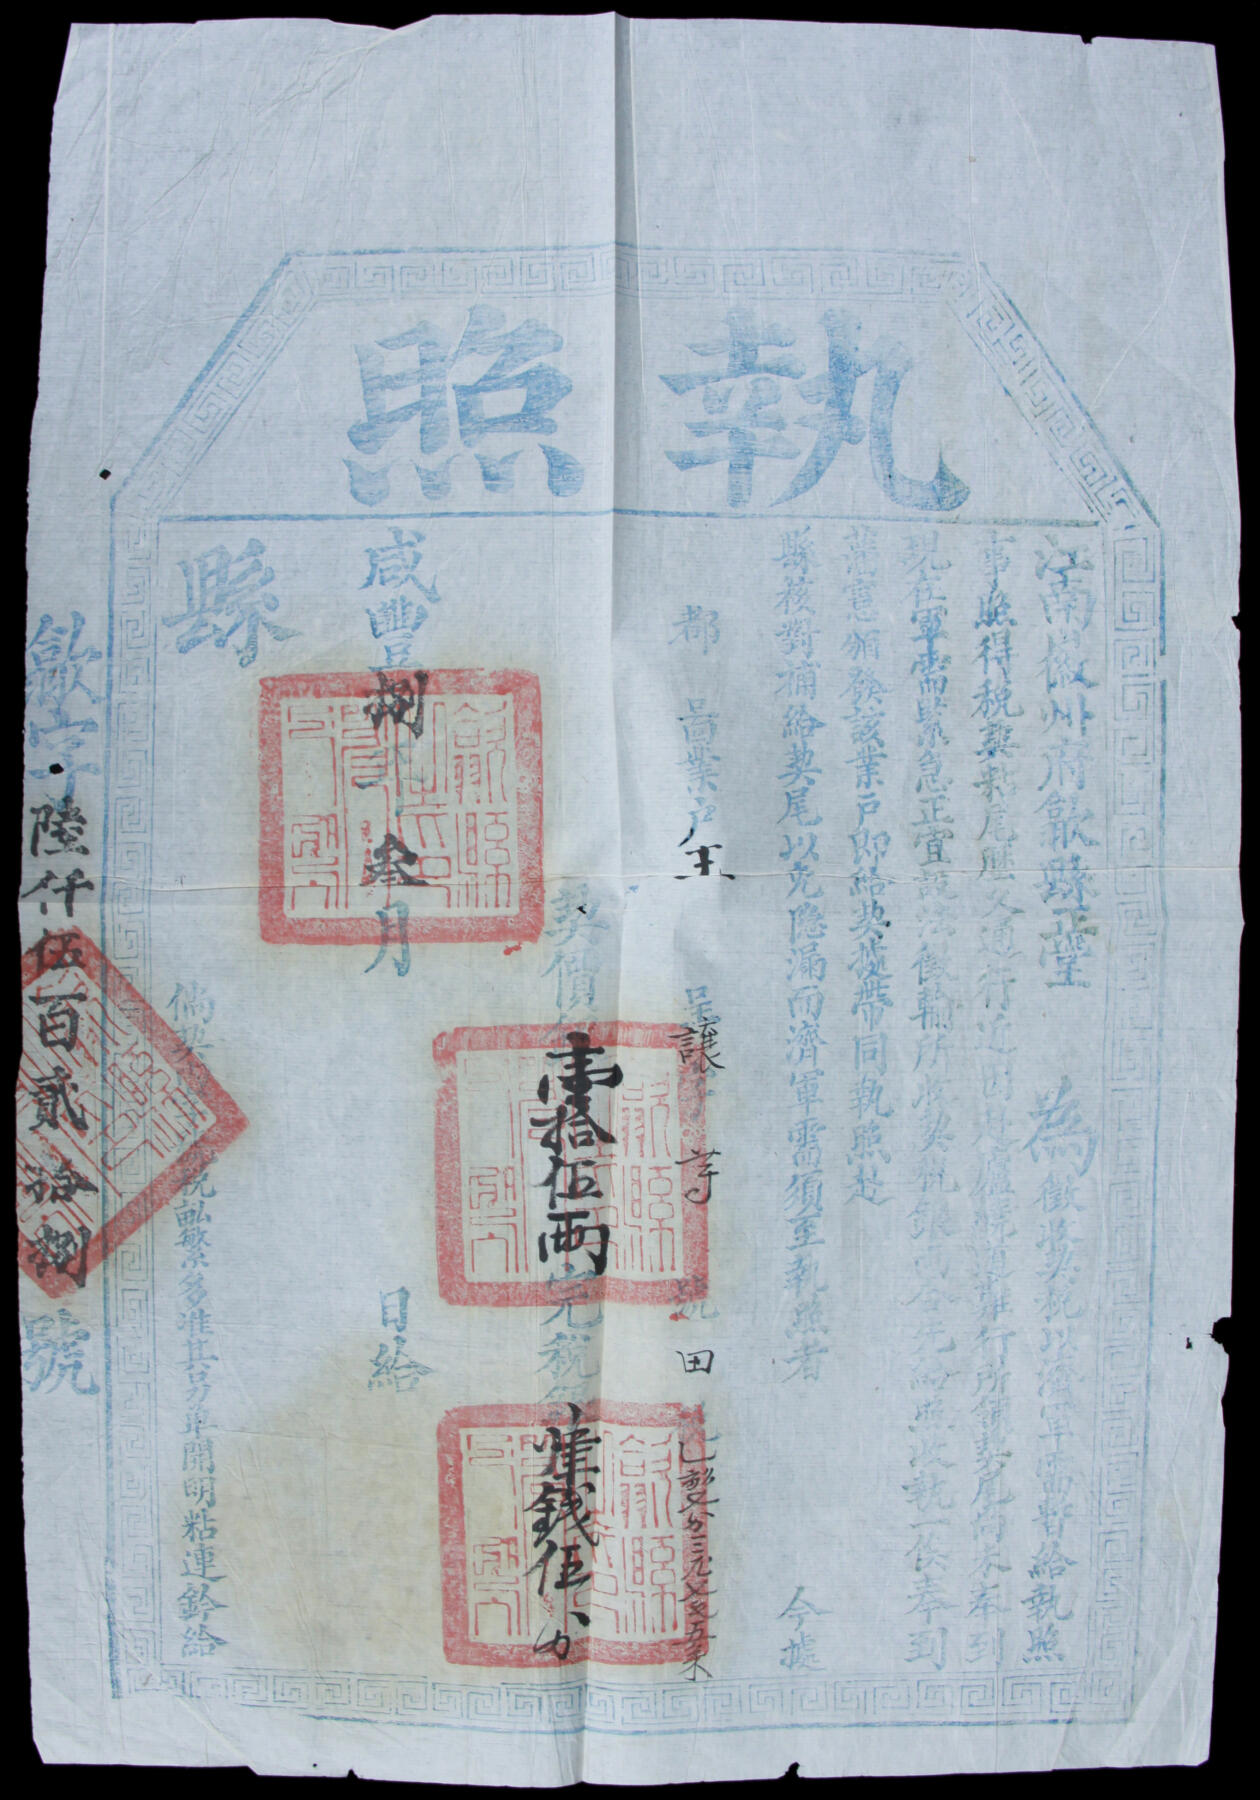 執照
江南徽州府歙縣正堂 為徵收契稅以濟軍需暫給執照
事照得稅契粘尾歷久通行近因 行所領契尾尚未奉到
現在軍需緊急正宜設法徵輸所收契稅銀兩合先給照收執一俟奉到
藩憲頒發該業戶即給契據帶同執照赴
縣核對補給契尾以免隱漏而濟軍需須至執照者 今據
都 啚業戶王 讓字 等 號田
契價 壹拾伍兩 完稅 肆錢伍分
咸豐捌年叁月 日給
縣
倘契 稅畝繁多准其另单開明粘連鈐給
歙字陸仟伍百貳拾捌號